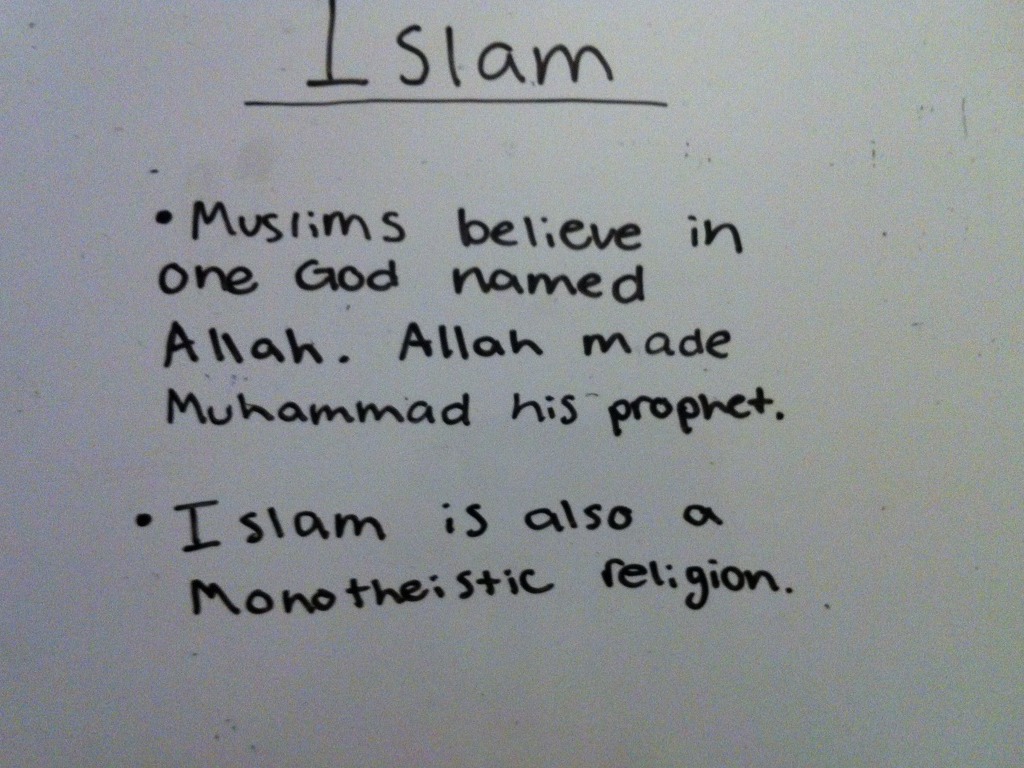 Islam
• Muslims believe in
one God named
Allah. Allah made
Muhammad his prophet.
• Islam is also a
Monotheistic religion.